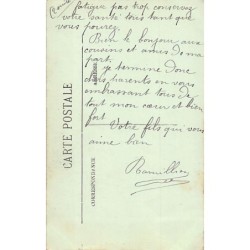 fatiguer pas trop conservez
votre santé tous tant que
vous pouvez
Bien le bonjour aux
cousins et amis de ma
part.
je termine donc
chers parents en vous
embrassant tous de
tout mon cœur et bien
fort
Votre fils qui vous
aime bien
CARTE POSTALE
CORRESPONDANCE